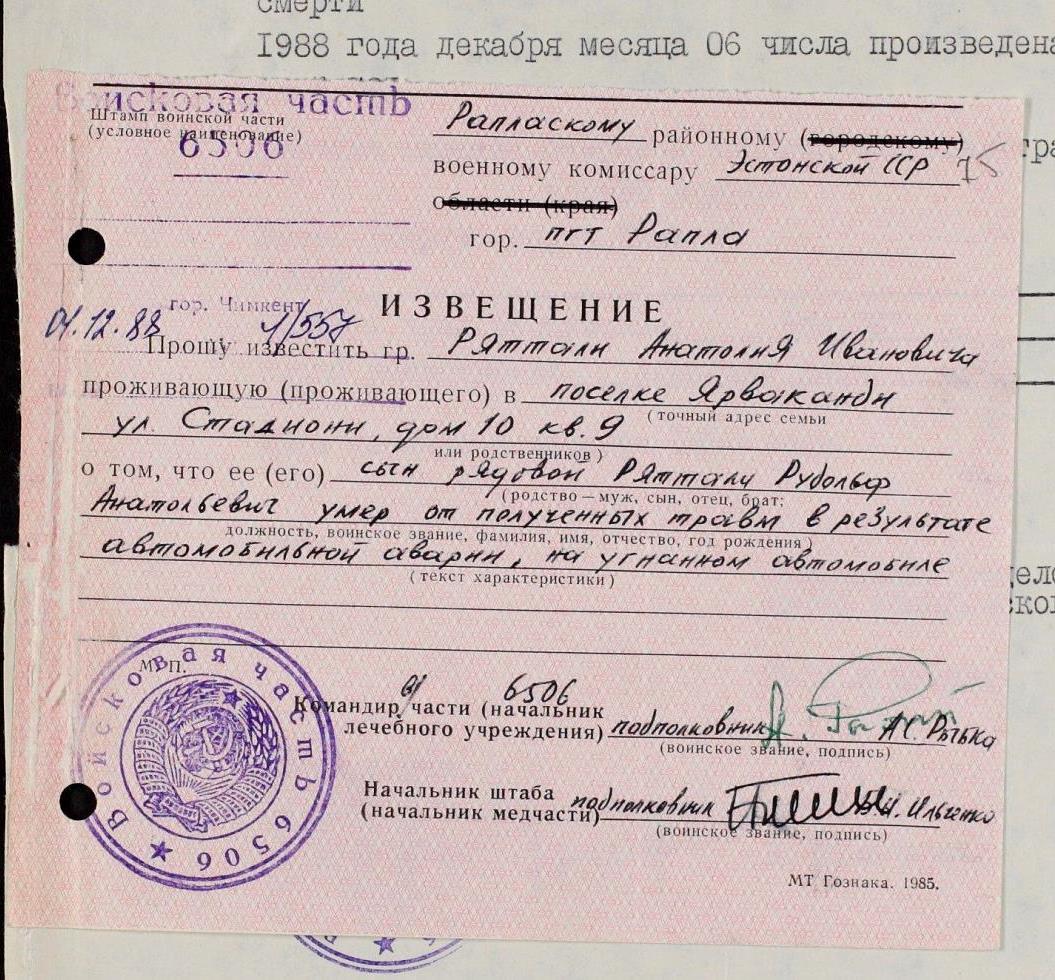 смерти
1988 года декабря месяца 06 числа произведена
Войсковая часть
Штамп воинской части
(условное наименование)
6506
Рапласкому районному (городскому)
военному комиссару Эстонской ССР
75
области (края)
гор. пгт Рапла
гор. Чимкент
ИЗВЕЩЕНИЕ
01.12.88 1/557
Прошу известить гр. Ряттали Анатолия Ивановича
проживающую (проживающего) в поселке Ярваканди
(точный адрес семьи
ул. Стадиони, дом 10 кв. 9
или родственников)
о том, что ее (его) сын рядовой Ряттали Рудольф
(родство — муж, сын, отец, брат;
Анатольевич умер от полученных травм в результате
должность, воинское звание, фамилия, имя, отчество, год рождения)
автомобильной аварии, на угнанном автомобиле
(текст характеристики)
М. П.
Войсковая часть 6506
в/ 6506
Командир части (начальник
лечебного учреждения) подполковник А.С. Рыбка
(воинское звание, подпись)
Начальник штаба
(начальник медчасти) подполковник В.И. Ильченко
(воинское звание, подпись)
МТ Гознака. 1985.